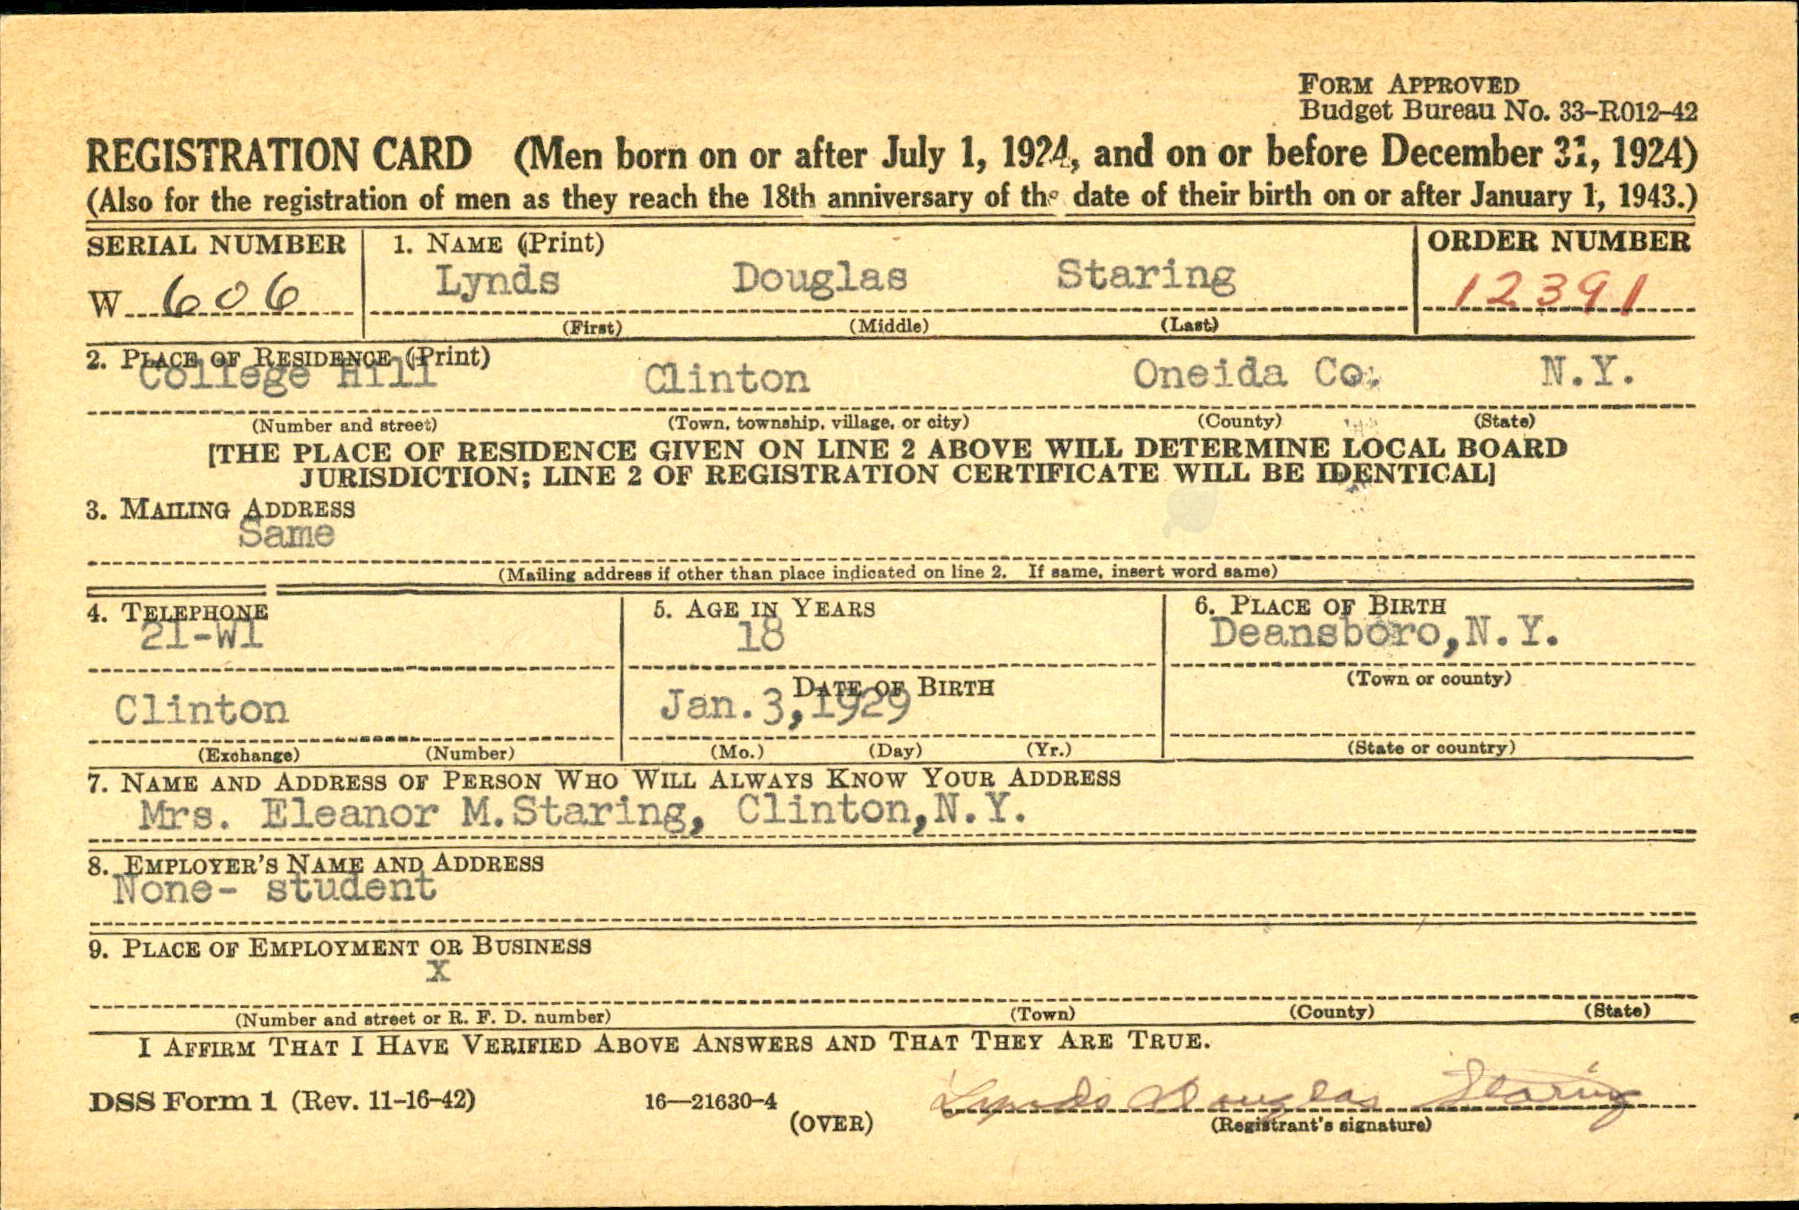 FORM APPROVED
Budget Bureau No. 33-R012-42
REGISTRATION CARD (Men born on or after July 1, 1924, and on or before December 31, 1924)
(Also for the registration of men as they reach the 18th anniversary of the date of their birth on or after January 1, 1943.)
SERIAL NUMBER 1. NAME (Print) ORDER NUMBER
W 606 Lynds Douglas Staring 12391
(First) (Middle) (Last)
2. PLACE OF RESIDENCE (Print)
College Hill Clinton Oneida Co. N.Y.
(Number and street) (Town, township, village, or city) (County) (State)
[THE PLACE OF RESIDENCE GIVEN ON LINE 2 ABOVE WILL DETERMINE LOCAL BOARD
JURISDICTION; LINE 2 OF REGISTRATION CERTIFICATE WILL BE IDENTICAL]
3. MAILING ADDRESS
Same
(Mailing address if other than place indicated on line 2. If same, insert word same)
4. TELEPHONE 5. AGE IN YEARS 6. PLACE OF BIRTH
21-W1 18 Deansboro,N.Y.
(Town or county)
DATE OF BIRTH
Clinton Jan.3,1929
(Exchange) (Number) (Mo.) (Day) (Yr.) (State or country)
7. NAME AND ADDRESS OF PERSON WHO WILL ALWAYS KNOW YOUR ADDRESS
Mrs. Eleanor M.Staring, Clinton,N.Y.
8. EMPLOYER'S NAME AND ADDRESS
None- student
9. PLACE OF EMPLOYMENT OR BUSINESS
X
(Number and street or R. F. D. number) (Town) (County) (State)
I AFFIRM THAT I HAVE VERIFIED ABOVE ANSWERS AND THAT THEY ARE TRUE.
DSS Form 1 (Rev. 11-16-42) 16—21630-4 Lynds Douglas Staring
(OVER) (Registrant's signature)